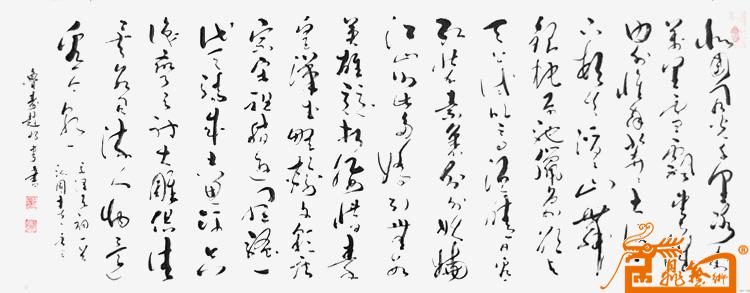 北国风光千里冰封
万里雪飘望长城
内外惟余莽莽大河上
下顿失滔滔山舞
银蛇原驰蜡象欲与
天公试比高须晴日看
红装素裹分外妖娆
江山如此多娇引无数
英雄竞折腰惜秦
皇汉武略输文采唐
宗宋祖稍逊风骚一
代天骄成吉思汗只
识弯弓射大雕俱往
矣数风流人物还
看今朝
毛泽东词一首
沁园春雪
书